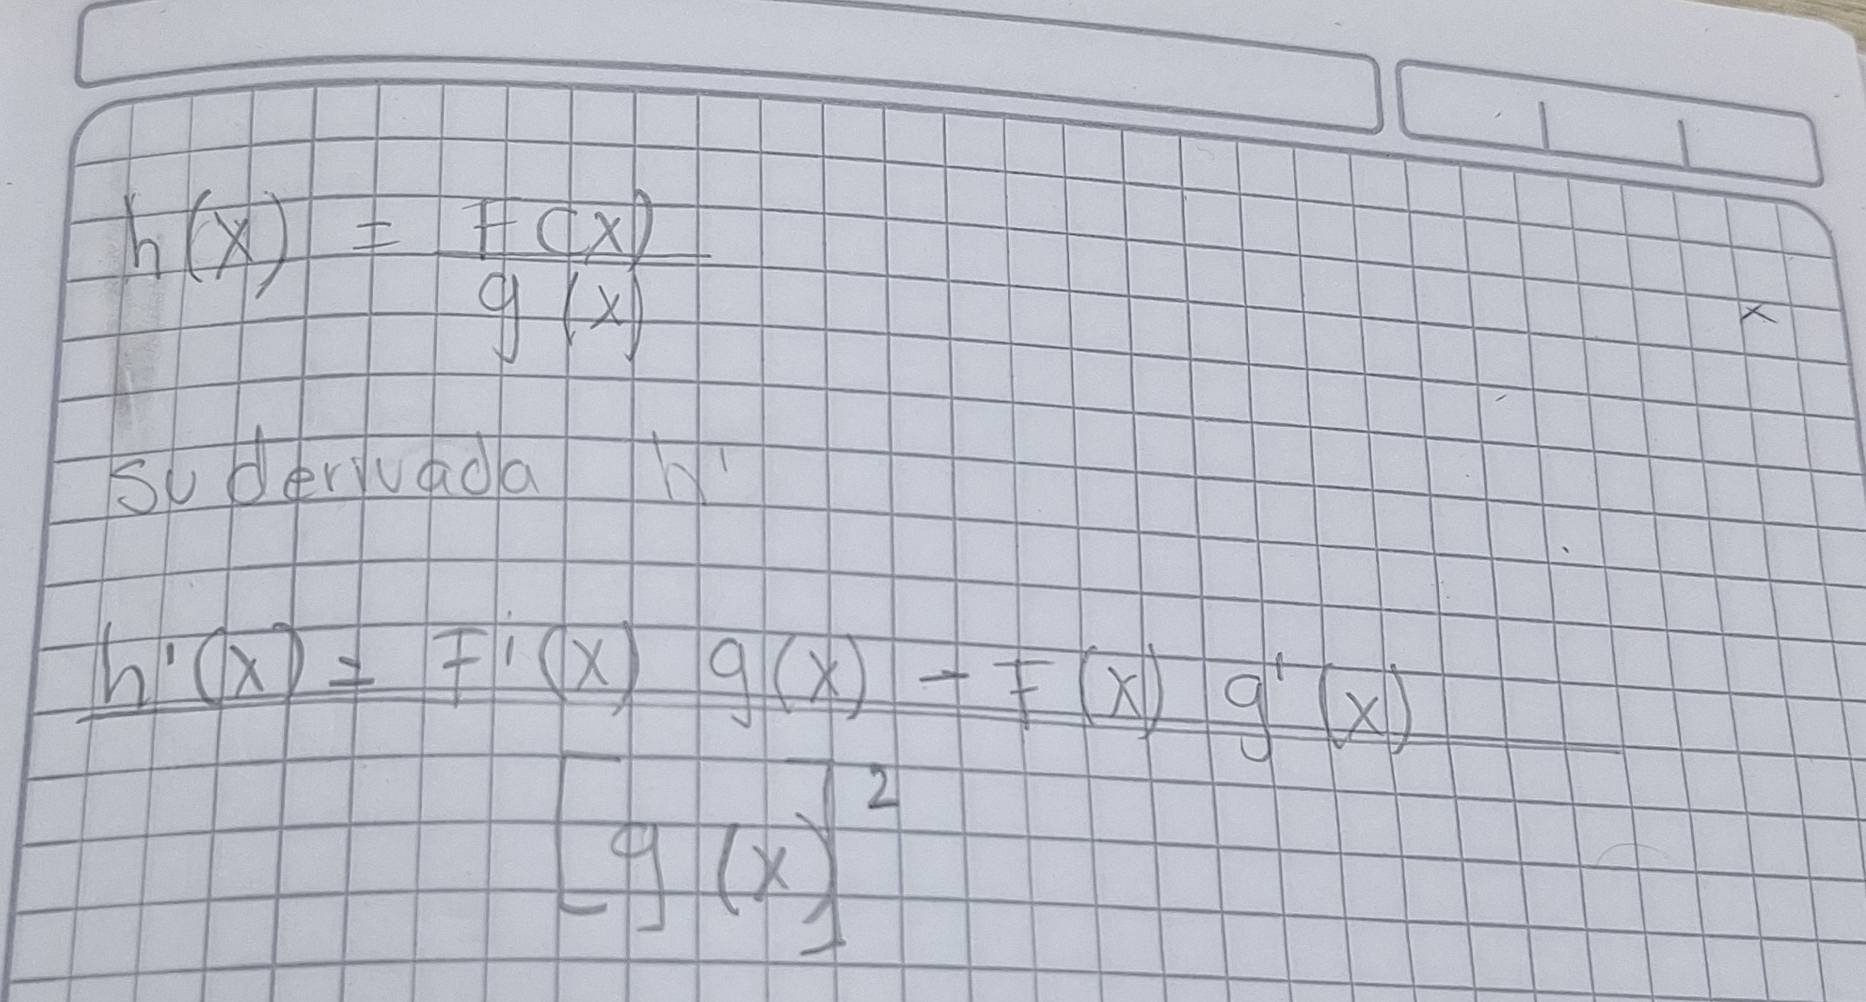 h(x) = F(x)
g(x)
su derivada h'
h'(x) = F'(x) g(x) - F(x) g'(x)
[g(x)]²